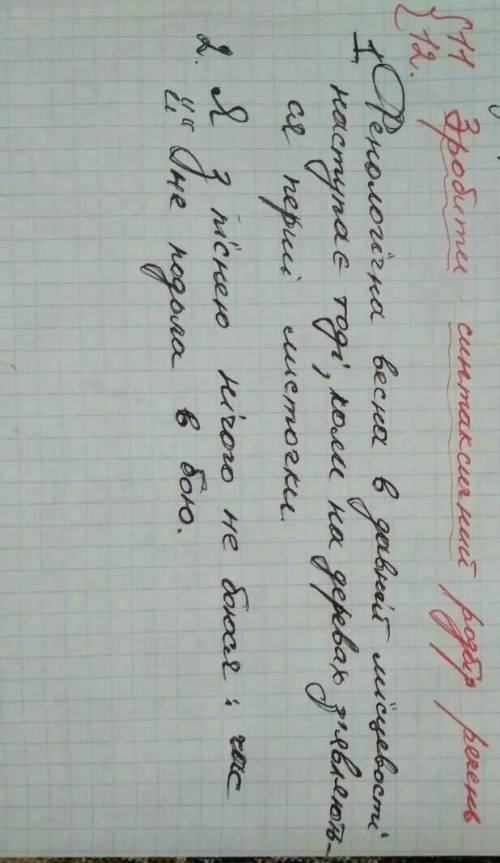 11 Зробити синтаксичний розбір речень
12.
1 Фенологічна весна в давній місцевості
наступає тоді, коли на деревах з'являють-
ся перші листочки.
2. Я з піснею нічого не боюся: час
її не подола в бою.